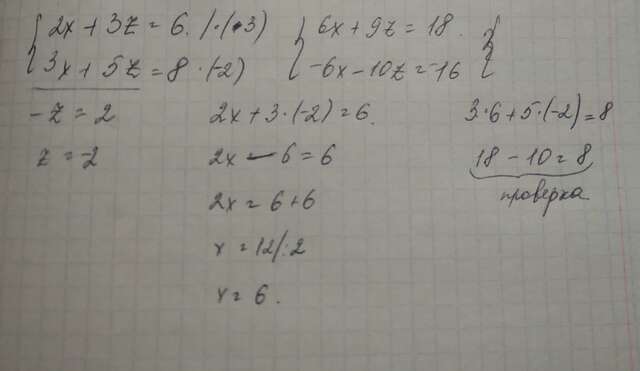 2x + 3z = 6. | · (·3)
3x + 5z = 8 · (-2)
- z = 2
z = -2
6x + 9z = 18.
-6x - 10z = -16
2x + 3 · (-2) = 6.
2x - 6 = 6
2x = 6 + 6
x = 12 / : 2
x = 6.
3 · 6 + 5 · (-2) = 8
18 - 10 = 8
проверка